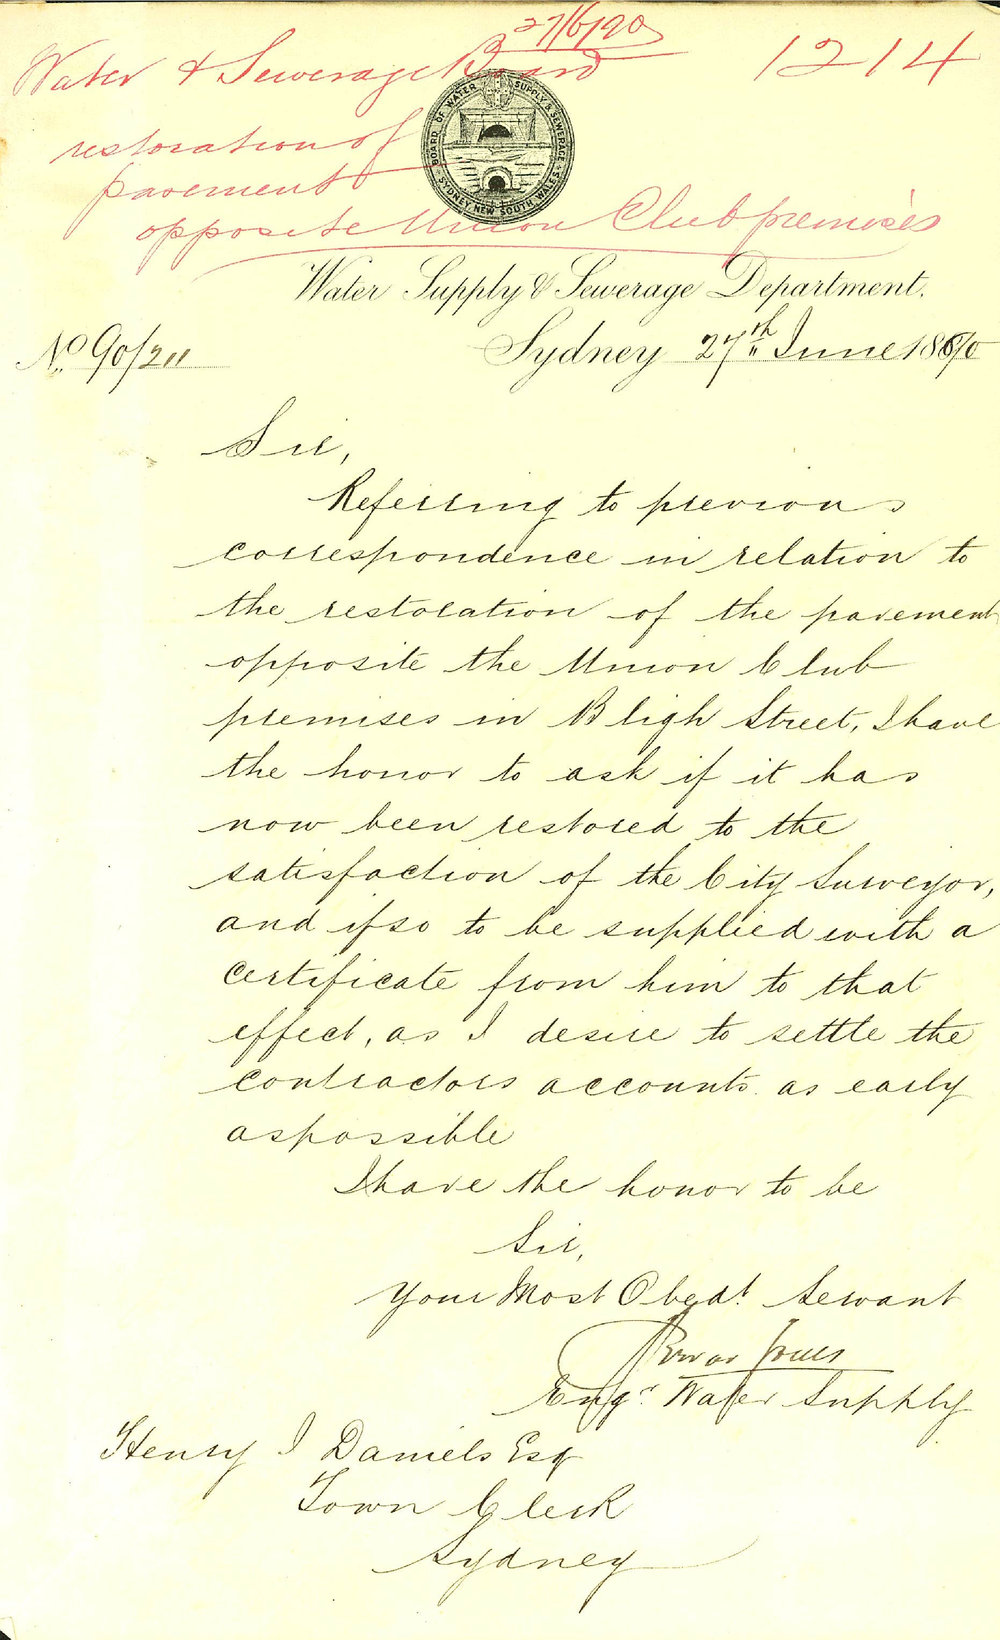 27/6/90
Water & Sewerage Board 1214
restoration of
pavement
opposite Union Club premises
BOARD OF WATER SUPPLY & SEWERAGE
SYDNEY, NEW SOUTH WALES
Water Supply & Sewerage Department.
No. 90/211
Sydney 27th June 1890
Sir,
Referring to previous
correspondence in relation to
the restoration of the pavement
opposite the Union Club
premises in Bligh Street, I have
the honor to ask if it has
now been restored to the
satisfaction of the City Surveyor,
and if so to be supplied with a
certificate from him to that
effect, as I desire to settle the
contractors accounts as early
as possible
I have the honor to be
Sir,
Your Most Obedt. Servant
Jones
Engr. Water Supply
Henry J Daniels Esq
Town Clerk
Sydney